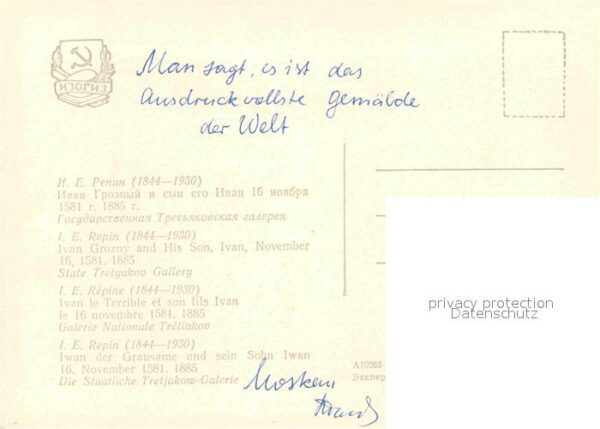 ИЗОГИЗ
Man sagt, es ist das
Ausdruckvollste Gemälde
der Welt
И. Е. Репин (1844—1930)
Иван Грозный и сын его Иван 16 ноября
1581 г. 1885 г.
Государственная Третьяковская галерея
I. E. Repin (1844—1930)
Ivan Grozny and His Son, Ivan, November
16, 1581. 1885
State Tretyakov Gallery
I. E. Répine (1844—1930)
Ivan le Terrible et son fils Ivan
le 16 novembre 1581. 1885
Galerie Nationale Trétiakov
I. E. Repin (1844—1930)
Iwan der Grausame und sein Sohn Iwan
16. November 1581. 1885
Die Staatliche Tretjakow-Galerie
Moskau
privacy protection
Datenschutz